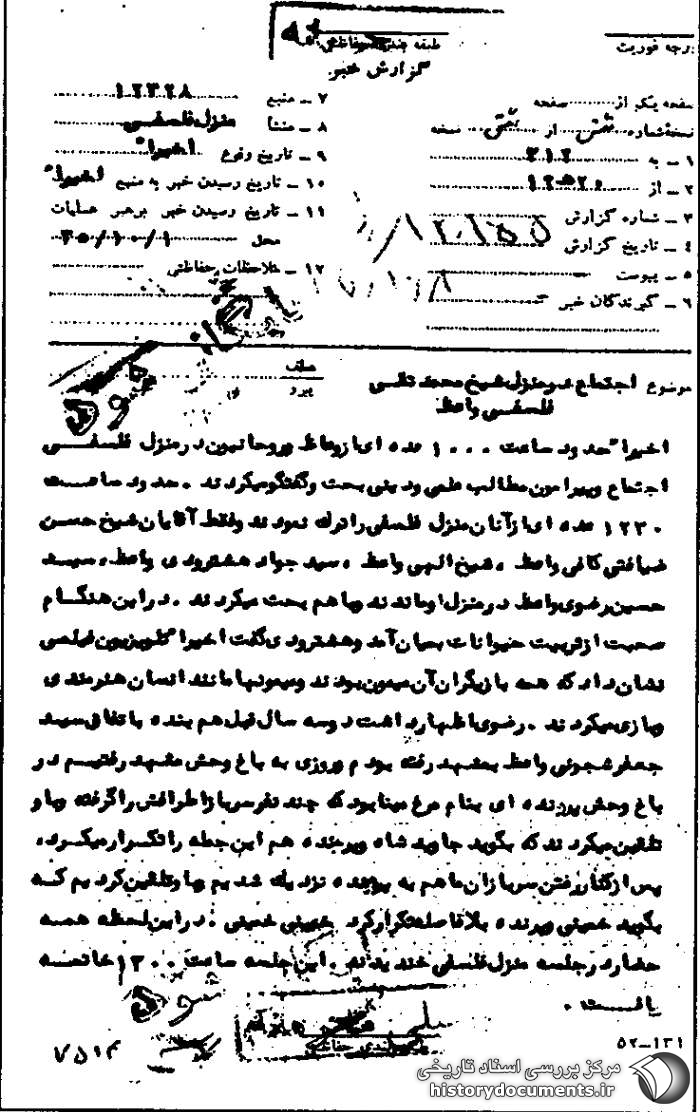 درجه فوریت
طبقه بندی حفاظتی
گزارش خبر
صفحه یکم از صفحه
نسخه شماره شش از شش نسخه
۱ ــ به ۳۱۲
۲ ــ از ۱۲ه۲۰
۳ ــ شماره گزارش
۴ ــ تاریخ گزارش
۵ ــ پیوست
۶ ــ گیرندگان خبر
۷ ــ منبع ۱۲۳۲۸
۸ ــ منشأ منزل فلسفی
۹ ــ تاریخ وقوع اخیرا"
۱۰ ــ تاریخ رسیدن خبر به منبع اخیرا"
۱۱ ــ تاریخ رسیدن خبر برهبر عملیات
محل
۱۲ ــ ملاحظات حفاظتی
موضوع اجتماع در منزل شیخ محمد تقی
فلسفی واعظ
عطف
پیرو
اخیرا" حدود ساعت ۱۰۰۰ عده ای از وعاظ و روحانیون در منزل فلسفی
اجتماع و پیرامون مطالب علمی و دینی بحث و گفتگو میکردند . حدود ساعت
۱۲۳۰ عده ای از آنان منزل فلسفی را ترک نمودند و فقط آقایان شیخ حسن
ضیافتی کافی واعظ ، شیخ الهی واعظ ، سید جواد هشترودی واعظ ، سید
حسین رضوی واعظ در منزل او ماندند و با هم بحث میکردند . در این هنگام
صحبت از تربیت حیوانات بمیان آمد و هشترودی گفت اخیرا تلویزیون فیلمی
نشان داد که همه بازیگران آن میمون بودند و میمونها مانند انسان هنرمندی
و بازی میکردند . رضوی اظهار داشت دو سه سال قبل هم بنده با تفاق سید
جعفر شجونی واعظ بمشهد رفته بودم و روزی به باغ وحش مشهد رفتیم در
باغ وحش پرنده ای بنام مرغ مینا بود که چند نفر سرباز اطرافش را گرفته و باو
تلقین میکردند که بگوید جاوید شاه و پرنده هم این جمله را تکرار میکرد ،
پس از کنار رفتن سربازان ما هم به پرنده نزدیک شدیم و باو تلقین کردیم که
بگوید خمینی و پرنده بلافاصله تکرار کرد خمینی خمینی . در این لحظه همه
حضار در جلسه منزل فلسفی خندیدند . این جلسه ساعت ۱۳۰۰ خاتمه
یافت .
۷۵۱۳
۵۲ــ۱۳۱
مرکز بررسی اسناد تاریخی
historydocuments.ir